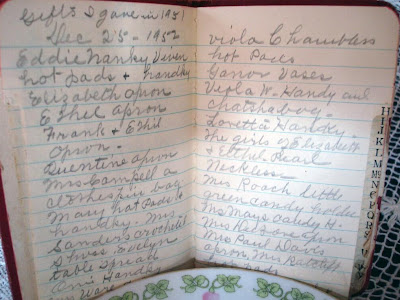 Gifts I gave in 1951
Dec 25 - 1952
Eddie Hanky Viven
hot pads & handky
Elizabeth apron
Ethel apron
Frank & Ethil
apron.
Quentine apron
Mrs Campell a
clothespin bag
Mary hot Pads &
handky. Mrs.
Sanders crocheted
Evelyn
table spread
Handky
Viola Chambless
hot Pads
Vases
Viola W. Handy and
Loretta Handky.
The girls of Elizabeth
& Ethel Pearl
Neckless.
Mrs Roach little
green candy holder
Mrs Mays candy H.
Mrs apron
Mrs Paul Davis
apron, Mrs Ratcliff
pads
H
I
J
K
L
M
Mc
N
O
P
Q
R